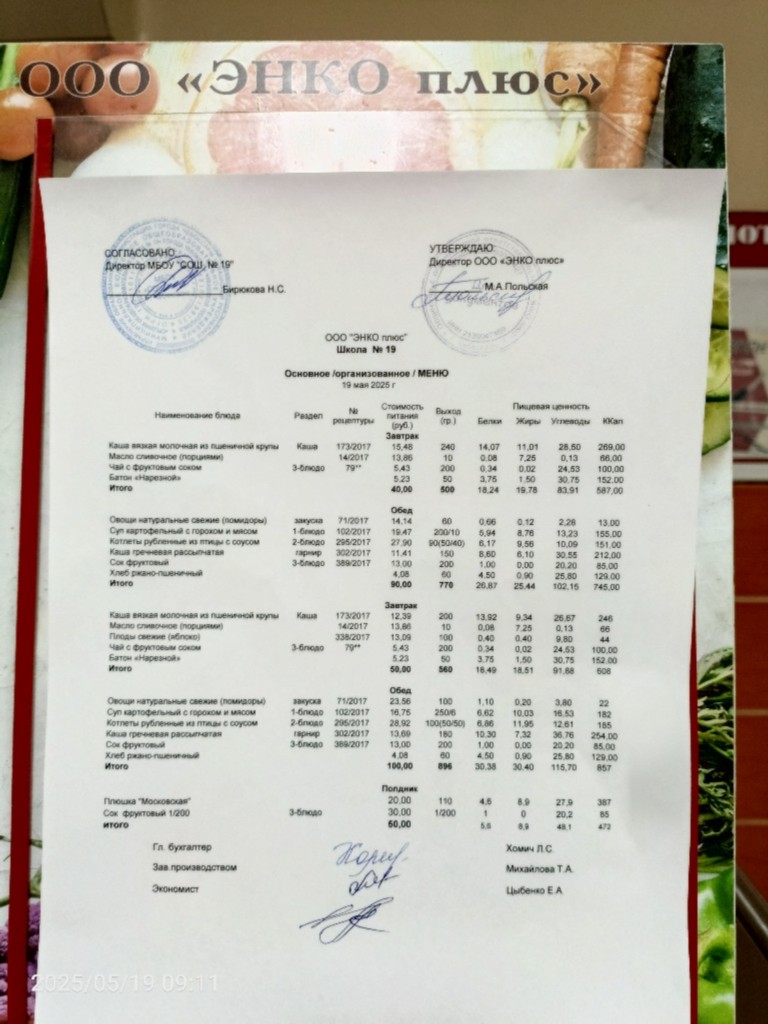 ООО «ЭНКО плюс»
СОГЛАСОВАНО
Директор МБОУ "СОШ № 19"
Бирюкова Н.С.
УТВЕРЖДАЮ
Директор ООО «ЭНКО плюс»
М.А.Польская
ООО "ЭНКО плюс"
Школа № 19
Основное /организованное / МЕНЮ
19 мая 2025 г
Наименование блюда Раздел № рецептуры Стоимость питания (руб.) Выход (гр.) Пищевая ценность Белки Жиры Углеводы ККал
Завтрак
Каша вязкая молочная из пшеничной крупы Каша 173/2017 15,48 240 14,07 11,01 28,50 269,00
Масло сливочное (порциями) 14/2017 13,86 10 0,08 7,25 0,13 66,00
Чай с фруктовым соком 3-блюдо 79** 5,43 200 0,34 0,02 24,53 100,00
Батон «Нарезной» 5,23 50 3,75 1,50 30,75 152,00
Итого 40,00 500 18,24 19,78 83,91 587,00
Обед
Овощи натуральные свежие (помидоры) закуска 71/2017 14,14 60 0,66 0,12 2,28 13,00
Суп картофельный с горохом и мясом 1-блюдо 102/2017 19,47 200/10 5,94 8,76 13,23 155,00
Котлеты рубленные из птицы с соусом 2-блюдо 295/2017 27,90 90(50/40) 6,17 9,56 10,09 151,00
Каша гречневая рассыпчатая гарнир 302/2017 11,41 150 8,60 6,10 30,55 212,00
Сок фруктовый 3-блюдо 389/2017 13,00 200 1,00 0,00 20,20 85,00
Хлеб ржано-пшеничный 4,08 60 4,50 0,90 25,80 129,00
Итого 90,00 770 26,87 25,44 102,15 745,00
Завтрак
Каша вязкая молочная из пшеничной крупы Каша 173/2017 12,39 200 13,92 9,34 26,67 246
Масло сливочное (порциями) 14/2017 13,86 10 0,08 7,25 0,13 66
Плоды свежие (яблоко) 338/2017 13,09 100 0,40 0,40 9,80 44
Чай с фруктовым соком 3-блюдо 79** 5,43 200 0,34 0,02 24,53 100,00
Батон «Нарезной» 5,23 50 3,75 1,50 30,75 152,00
Итого 50,00 560 18,49 18,51 91,88 608
Обед
Овощи натуральные свежие (помидоры) закуска 71/2017 23,56 100 1,10 0,20 3,80 22
Суп картофельный с горохом и мясом 1-блюдо 102/2017 16,75 250/6 6,62 10,03 16,53 182
Котлеты рубленные из птицы с соусом 2-блюдо 295/2017 28,92 100(50/50) 6,86 11,95 12,61 185
Каша гречневая рассыпчатая гарнир 302/2017 13,69 180 10,30 7,32 36,76 254,00
Сок фруктовый 3-блюдо 389/2017 13,00 200 1,00 0,00 20,20 85,00
Хлеб ржано-пшеничный 4,08 60 4,50 0,90 25,80 129,00
Итого 100,00 896 30,38 30,40 115,70 857
Полдник
Плюшка "Московская" 20,00 110 4,6 8,9 27,9 387
Сок фруктовый 1/200 3-блюдо 30,00 1/200 1 0 20,2 85
итого 50,00 5,6 8,9 48,1 472
Гл. бухгалтер Хомич Л.С.
Зав.производством Михайлова Т.А.
Экономист Цыбенко Е.А
2025/05/19 09:11